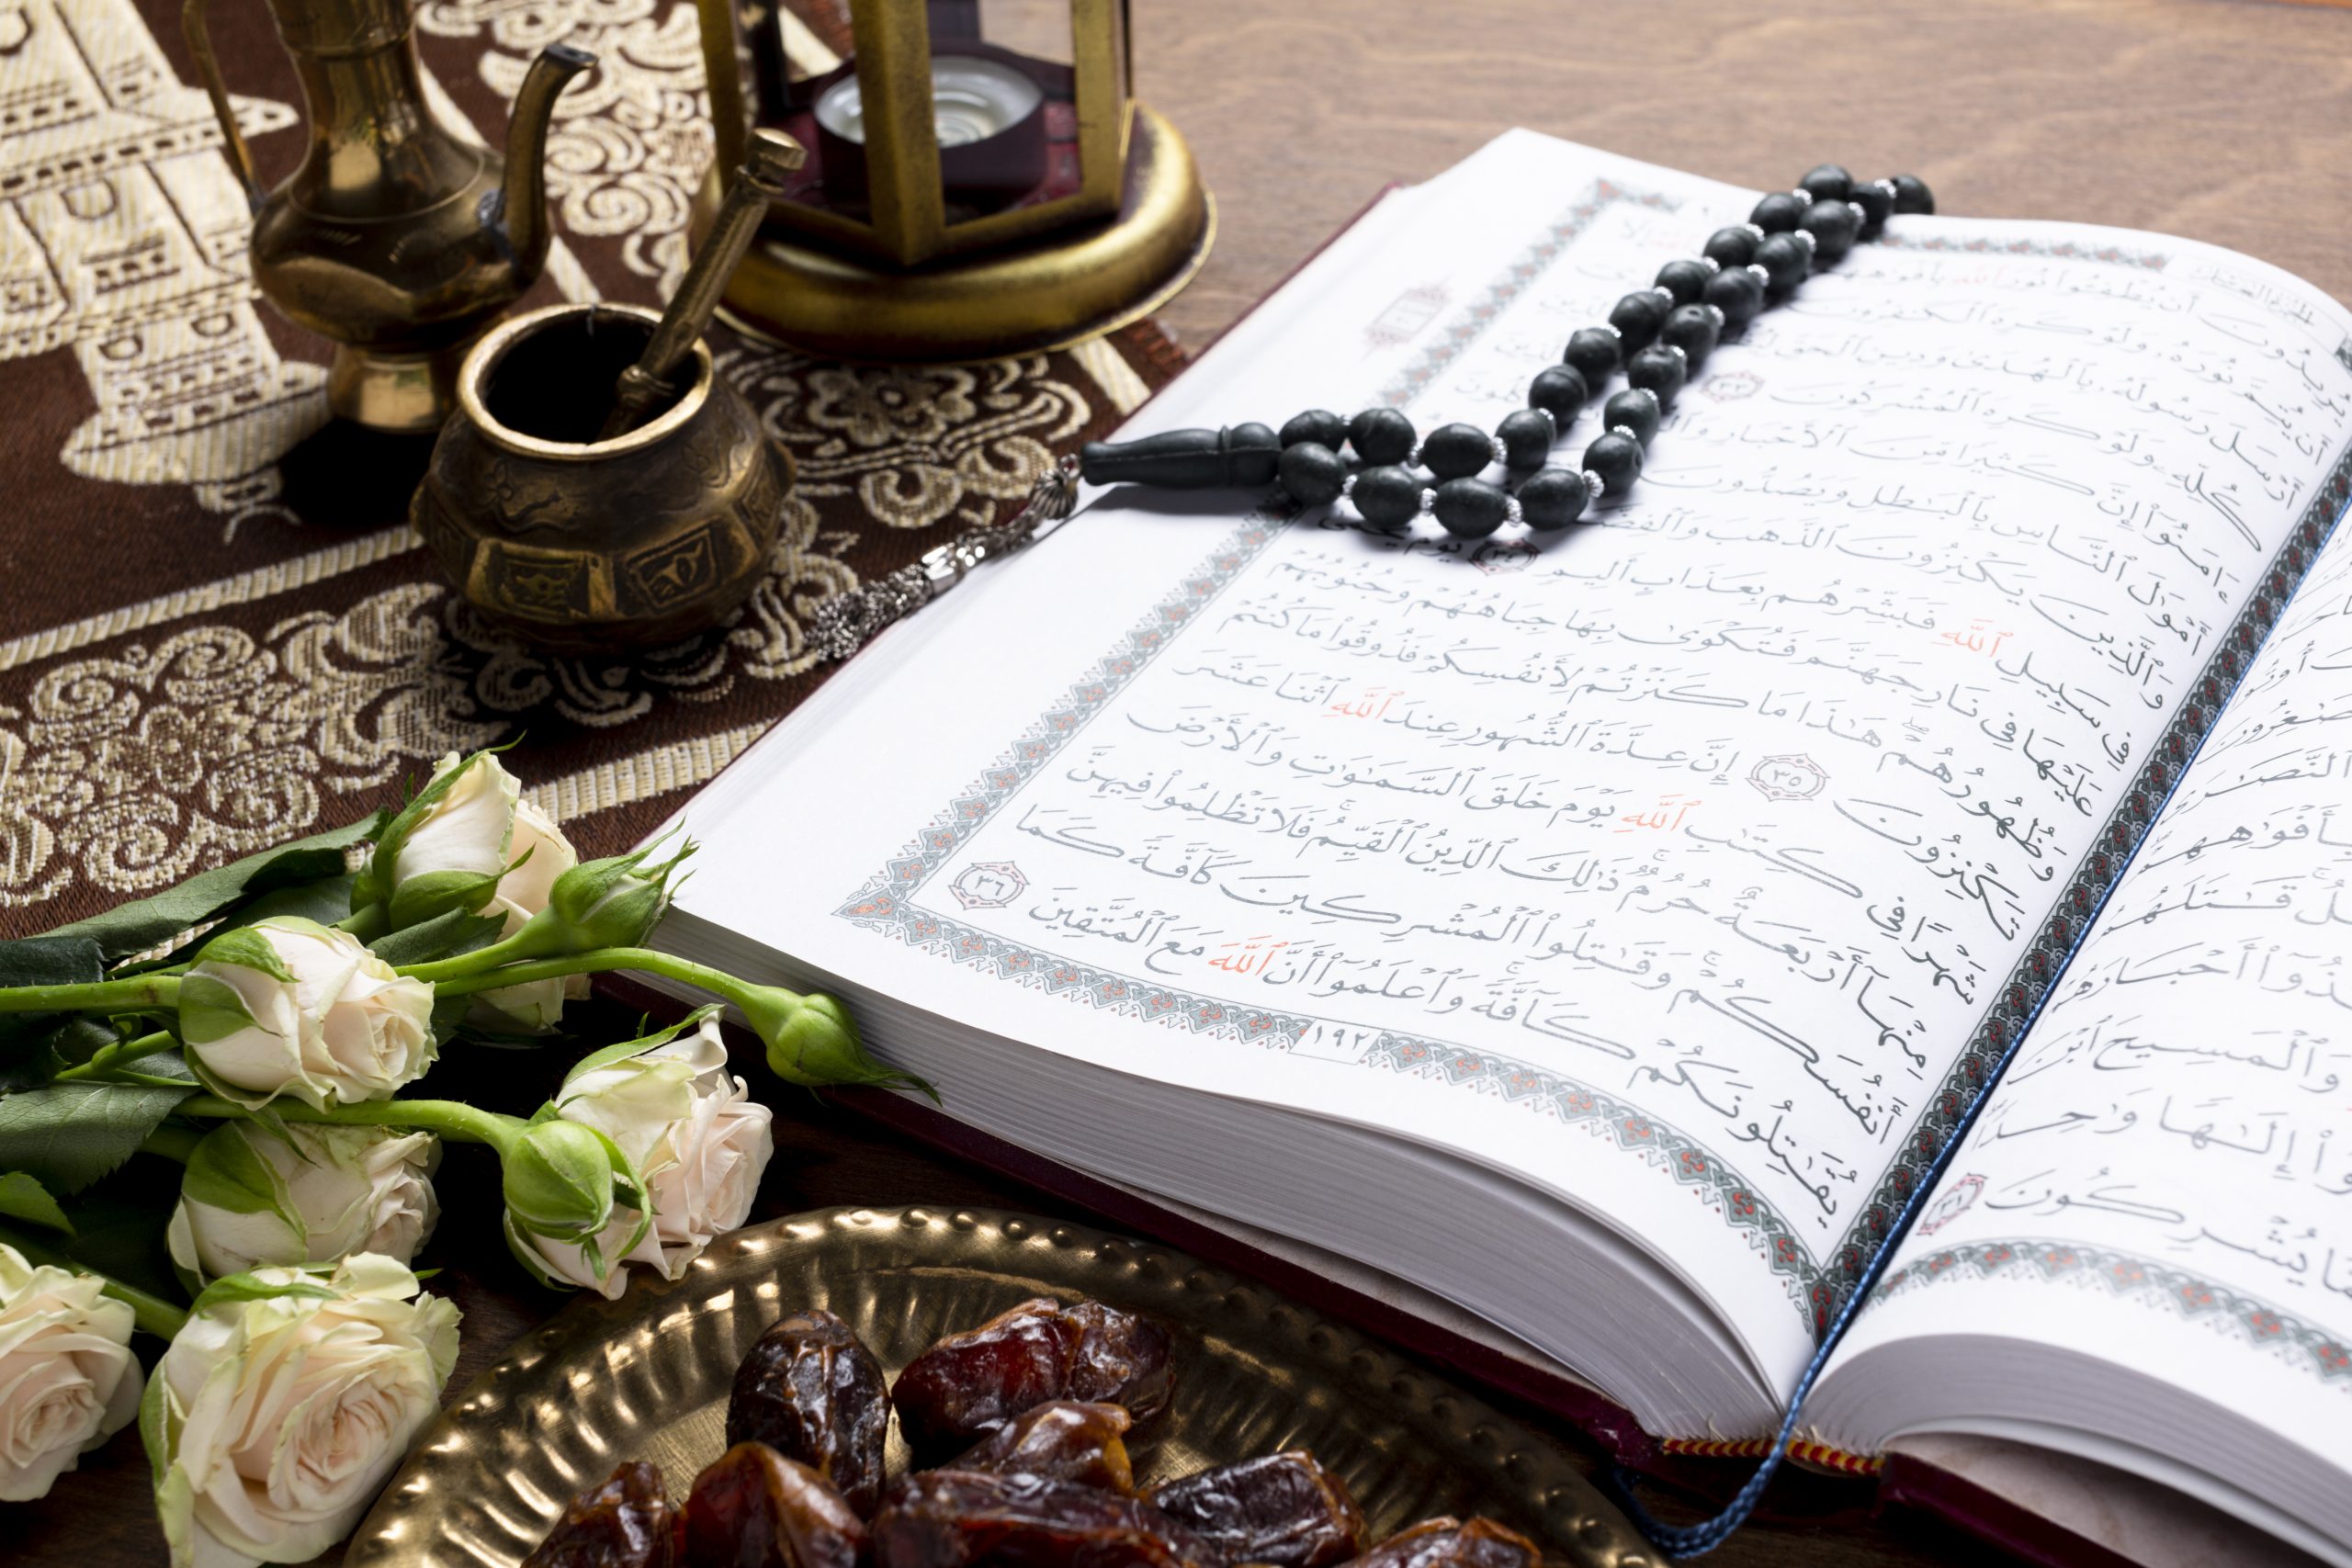 يُرِيدُونَ أَن يُطْفِـُٔوا۟ نُورَ ٱللَّهِ بِأَفْوَٰهِهِمْ
أَن يُتِمَّ نُورَهُۥ وَلَوْ كَرِهَ ٱلْكَـٰفِرُونَ
أَرْسَلَ رَسُولَهُۥ بِٱلْهُدَىٰ وَدِينِ ٱلْحَقِّ
كُلِّهِۦ وَلَوْ كَرِهَ ٱلْمُشْرِكُونَ ٣٣
ءَامَنُوٓا۟ إِنَّ كَثِيرًا مِّنَ ٱلْأَحْبَارِ
أَمْوَٰلَ ٱلنَّاسِ بِٱلْبَـٰطِلِ وَيَصُدُّونَ
وَٱلَّذِينَ يَكْنِزُونَ ٱلذَّهَبَ وَٱلْفِضَّةَ
فِى سَبِيلِ ٱللَّهِ فَبَشِّرْهُم بِعَذَابٍ أَلِيمٍ ٣٤ يَوْمَ يُحْمَىٰ
عَلَيْهَا فِى نَارِ جَهَنَّمَ فَتُكْوَىٰ بِهَا جِبَاهُهُمْ وَجُنُوبُهُمْ
وَظُهُورُهُمْ هَـٰذَا مَا كَنَزْتُمْ لِأَنفُسِكُمْ فَذُوقُوا۟ مَا كُنتُمْ
تَكْنِزُونَ ٣٥ إِنَّ عِدَّةَ ٱلشُّهُورِ عِندَ ٱللَّهِ ٱثْنَا عَشَرَ
شَهْرًا فِى كِتَـٰبِ ٱللَّهِ يَوْمَ خَلَقَ ٱلسَّمَـٰوَٰتِ وَٱلْأَرْضَ
مِنْهَآ أَرْبَعَةٌ حُرُمٌ ۚ ذَٰلِكَ ٱلدِّينُ ٱلْقَيِّمُ ۚ فَلَا تَظْلِمُوا۟ فِيهِنَّ
أَنفُسَكُمْ ۚ وَقَـٰتِلُوا۟ ٱلْمُشْرِكِينَ كَآفَّةً كَمَا
يُقَـٰتِلُونَكُمْ كَآفَّةً ۚ وَٱعْلَمُوٓا۟ أَنَّ ٱللَّهَ مَعَ ٱلْمُتَّقِينَ ٣٦
١٩٢
بِأَفْوَٰهِهِمْ
قَـٰتَلَهُمُ
أَحْبَارَهُمْ
وَٱلْمَسِيحَ ٱبْنَ
إِلَـٰهًا وَٰحِدًا
يُشْرِكُونَ ٣١